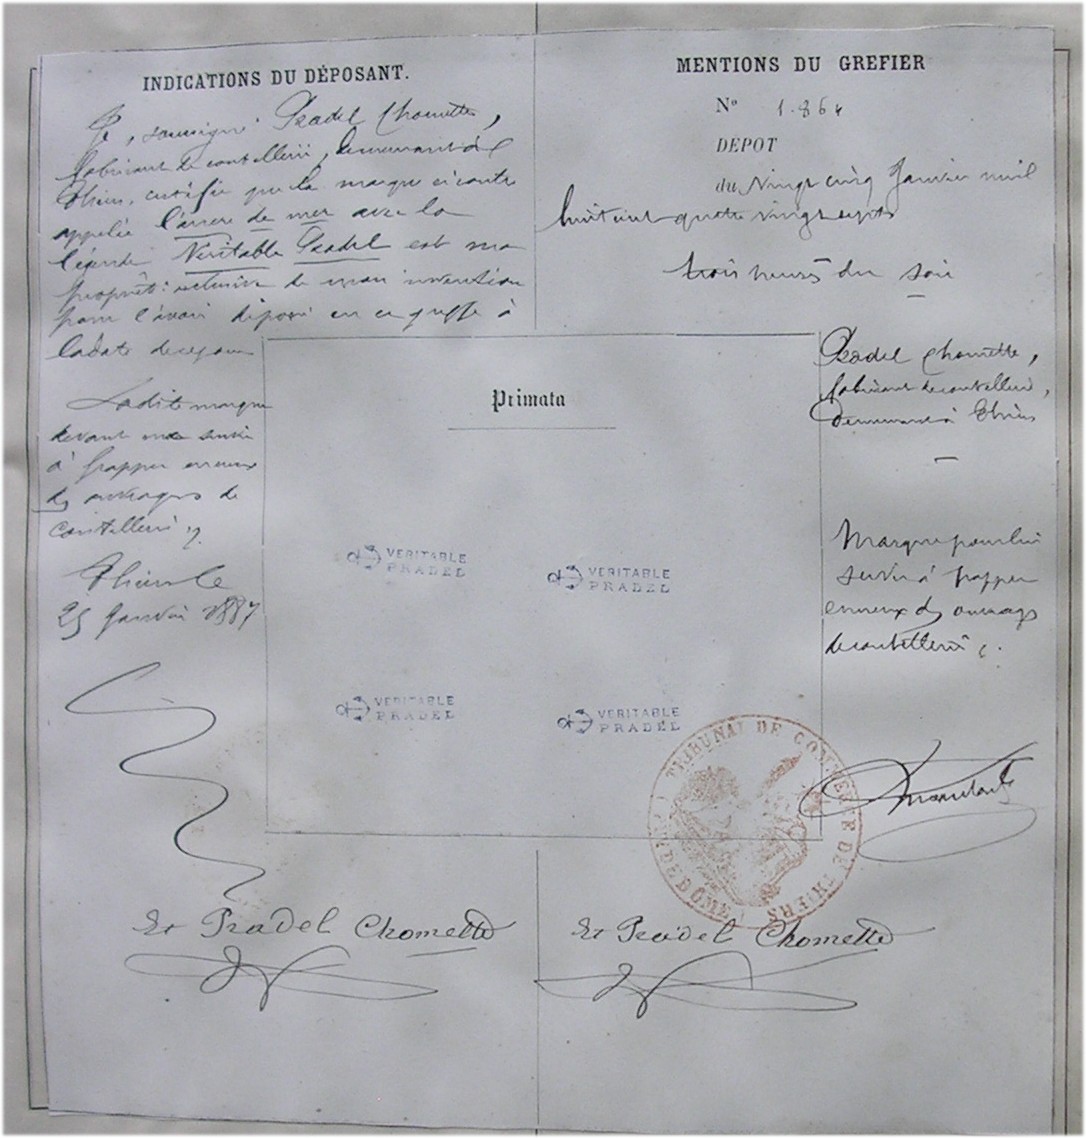 INDICATIONS DU DÉPOSANT.
Je, soussigné Pradel Chomette,
fabricant de coutellerie, demeurant à
Thiers, certifie que la marque ci contre
appelée l'ancre de mer avec la
légende Véritable Pradel est ma
propriété exclusive de mon invention
pour l'avoir déposé en ce greffe à
la date de ce jour
Ladite marque
devant me servir
à frapper en creux
des ouvrages de
coutellerie
Thiers le
25 Janvier 1887
MENTIONS DU GREFIER
N° 1.864
DÉPOT
du Vingt cinq Janvier mil
huit cent quatre vingt sept
trois heures du soir
Pradel Chomette,
fabricant de coutellerie,
demeurant à Thiers
Marque pour lui
servir à frapper
en creux des ouvrages
de coutellerie
Primata
VERITABLE
PRADEL
VERITABLE
PRADEL
VERITABLE
PRADEL
VERITABLE
PRADEL
TRIBUNAL DE COMMERCE DE THIERS
Pradel Chomette
Pradel Chomette